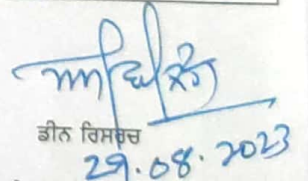 ਡੀਨ ਰਿਸਰਚ
29.08.2023